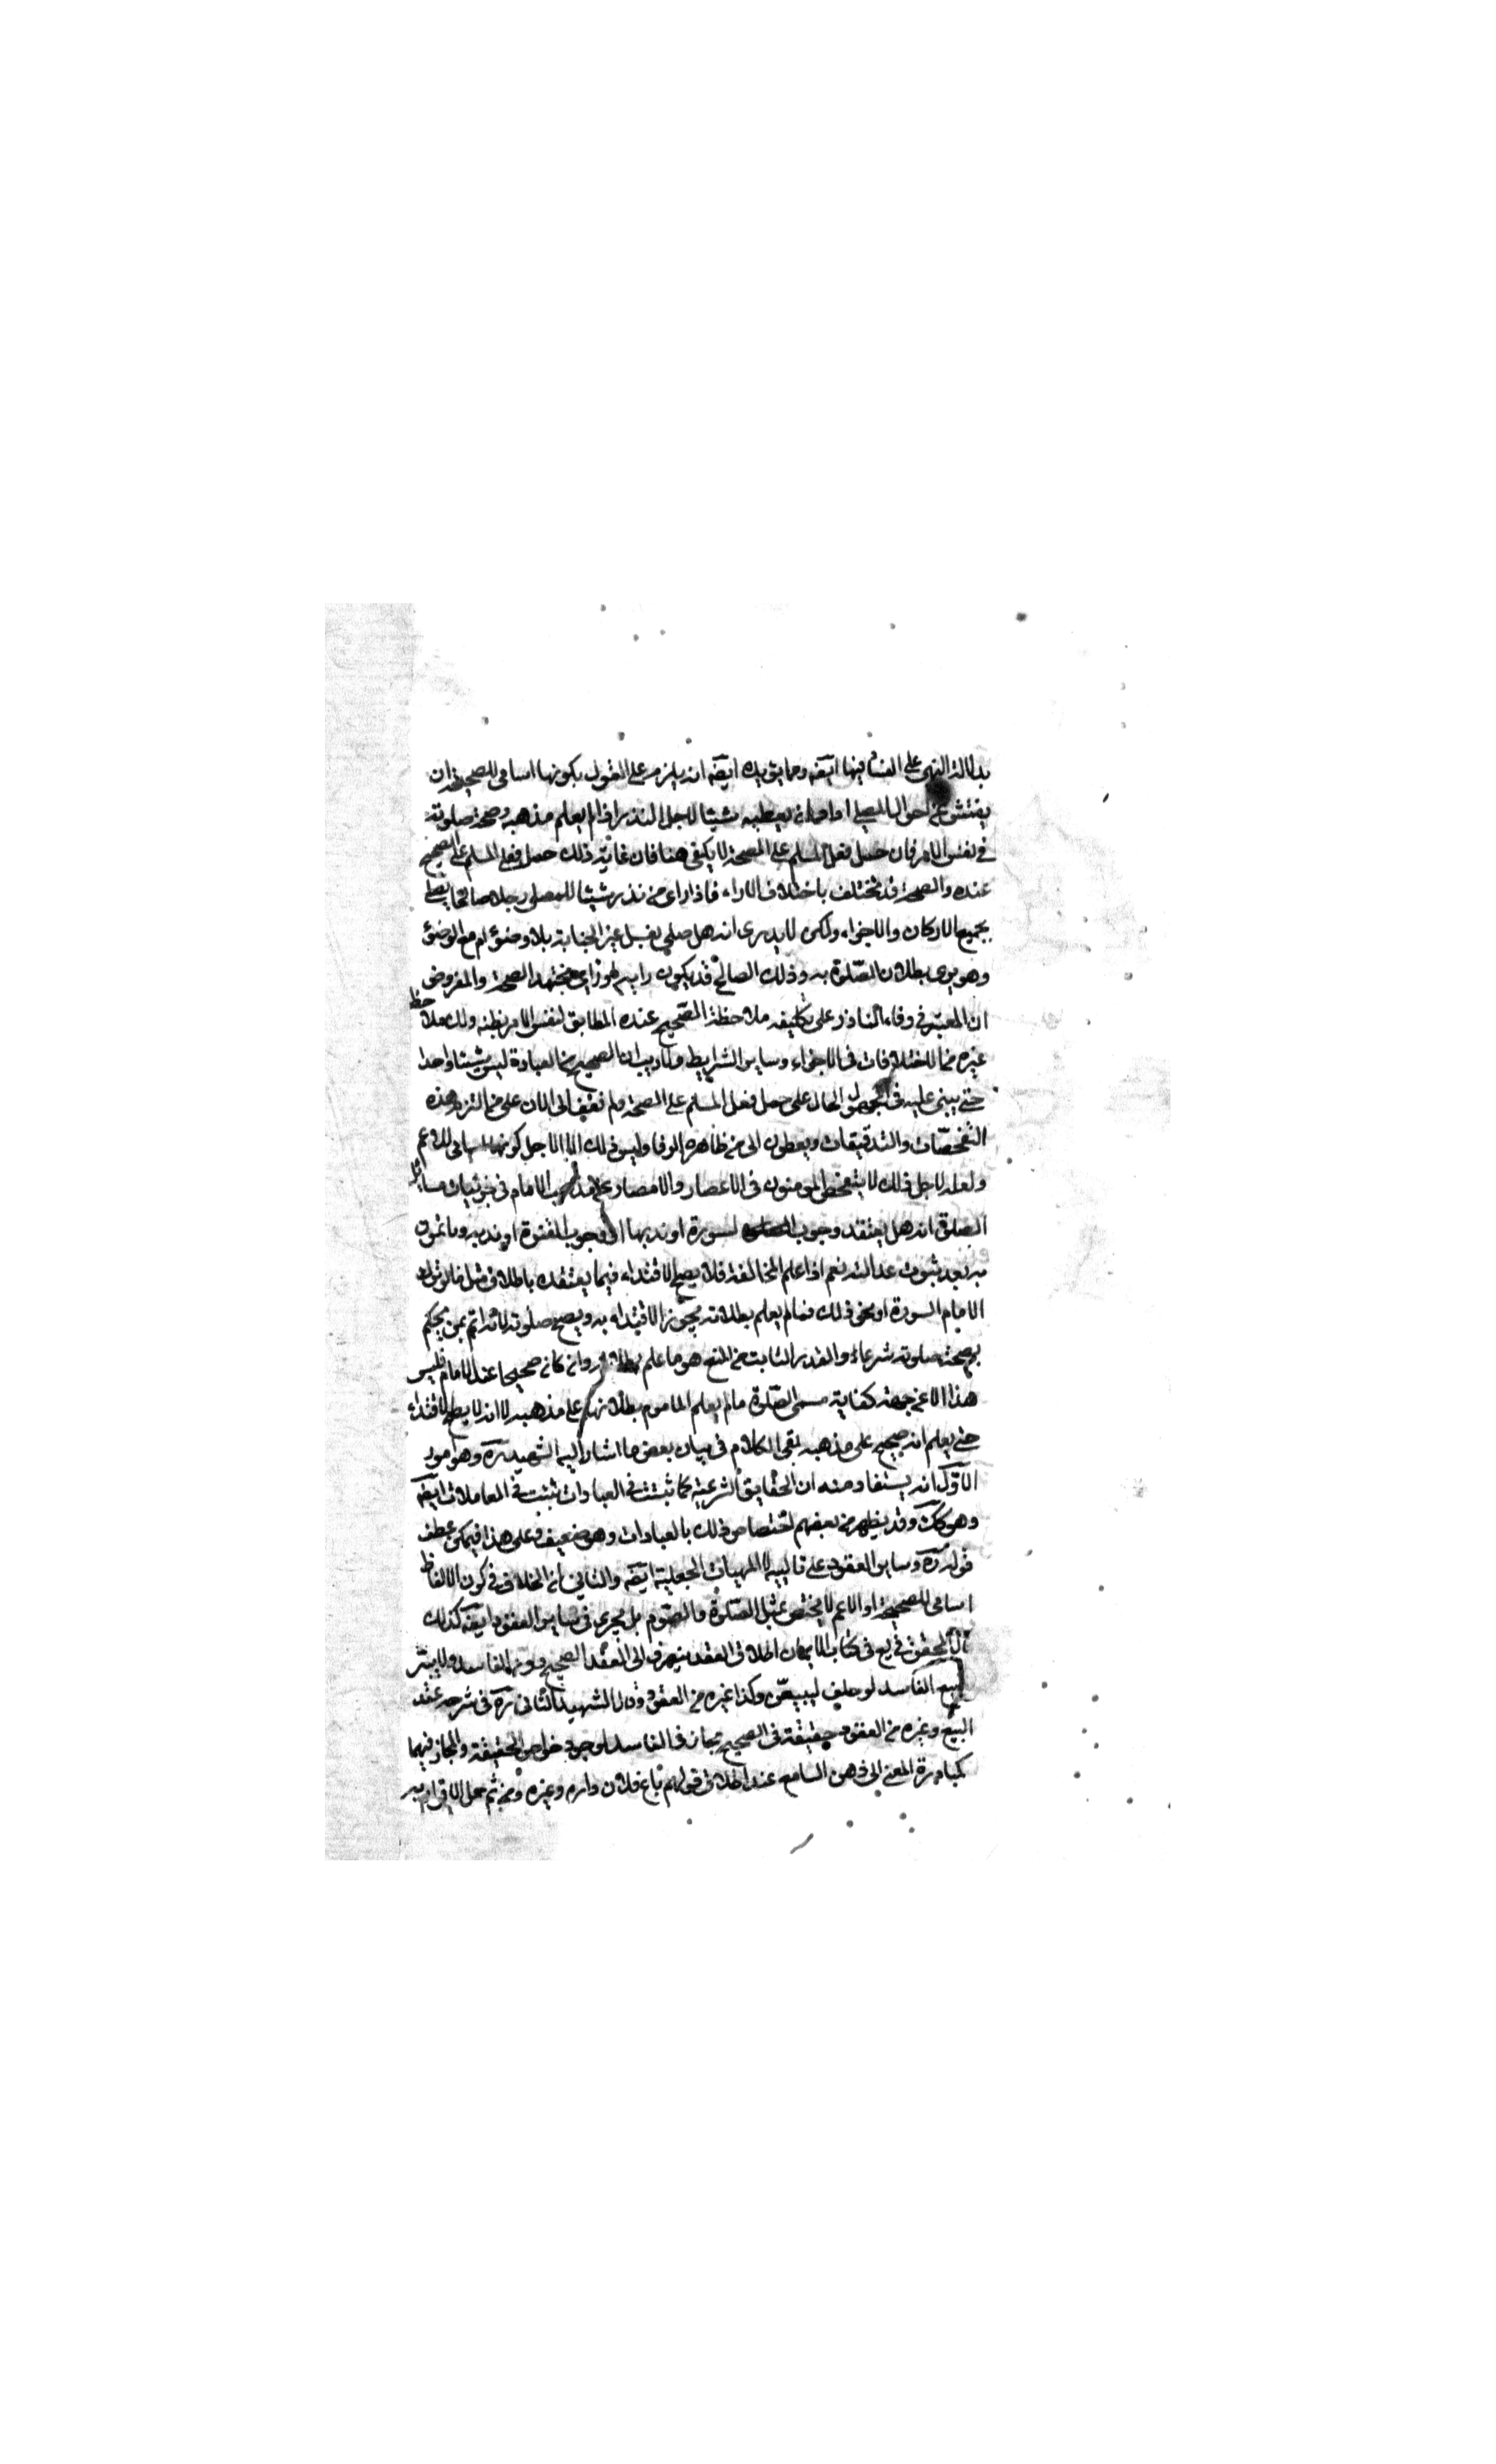 بدلالة النهى على الفساد فيها ايضه ومما يؤيده ايضه انه يلزم على القول بكونها اسامى للصحيحة ان
يفتش عن احوال المصلى اذا اراد ان يعطيه شيئا لاجل النذر اذا لم يعلم مذهبه وصحة صلوته
فى نفس الامر فان حمل فعل المسلم على الصحة لا يكفى هنا فان غاية ذلك حمل فعل المسلم على الصحيح
عنده والصحة قد تختلف باختلاف الاراء فاذا راى من نذر شيئا للمصلى رجلا صالحا يصلى
بجميع الاركان والاجزاء ولكن لا يدرى انه هل صلى بغسل غير الجنابة بلا وضوء ام مع الوضوء
وهو يرى بطلان الصلوة به وذلك الصالح قد يكون رايه او راى مجتهده الصحة والمفروض
ان المعتبر فى وفاء الناذر على تكليفه ملاحظة الصحيح عنده المطابق لنفس الامر بظنه ولك ملاحظة
غيره من الاختلافات فى الاجزاء وساير الشرايط ولا ريب ان الصحيح من العبادة ليس شيئا واحدا
حتى يبنى عليه فى المجهول الحال على حمل فعل المسلم على الصحة ولم نقف الى الان على من التزم هذه
التفحصات والتدقيقات ويعطون الى من ظاهره الوفا وليس ذلك الا لاجل كونها اسامى للاعم
ولعله لاجل ذلك لا يتفحص المومنون فى الاعصار والامصار عن مذهب الامام فى جزئيات مسائل
الصلوة انه هل يعتقد وجوب السورة او ندبها او وجوب القنوة او ندبه وياتمون
به بعد ثبوت عدالته نعم اذا علم المخالفة فلا يصح الاقتداء فيما يعتقده باطلا فى مثل ما لو ترك
الامام السورة او نحو ذلك فما لم يعلم بطلانه يجوز الاقتداء به ويصح صلوته لانه ائتم بمن يحكم
بصحة صلوته شرعا والقدر الثابت من المنع هو ما علم بطلانه وان كان صحيحا عند الامام فليس
هذا الا من جهة كفاية مسمى الصلوة ما لم يعلم الماموم بطلانها على مذهبه لا انه لا يصح الاقتداء
حتى يعلم انه صحيح على مذهبه بقى الكلام فى بيان بعض ما اشار اليه الشهيد ره وهو امور
الاول انه يستفاد منه ان الحقايق الشرعية كما ثبتت فى العبادات ثبتت فى المعاملات ايضه
وهو كك وقد يظهر من بعضهم اختصاص ذلك بالعبادات وهو ضعيف وعلى هذا فيمكن عطف
قوله ره وساير العقود على قالبية المهيات الجعلية ايضه والثانى ان الخلاف فى كون الالفاظ
اسامى للصحيحة او الاعم لا يختص بمثل الصلوة والصوم بل يجرى فى ساير العقود ايضه كذلك
قال المحقق فى يع فى كتاب الايمان اطلاق العقد ينصرف الى العقد الصحيح دون الفاسد ولا يبر
بالبيع الفاسد لو حلف ليبيعن وكذا غيره من العقود وقال الشهيد الثانى ره فى شرحه عقد
البيع وغيره من العقود حقيقة فى الصحيح مجاز فى الفاسد لوجود خواص الحقيقة والمجاز فيهما
كمبادرة المعنى الى ذهن السامع عند اطلاق قولهم باع فلان داره وغيره ومن ثم حمل الاقرار به